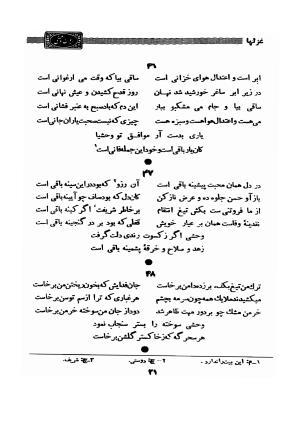 غزلها
۴۶
ابر است و اعتدال هوای خزانی است ساقی بیا که وقت می ارغوانی است
در زیر ابر ساغر خورشید شد نهان روز قدح کشیدن و عیش نهانی است
ساقی بیا و جام می مشکبو بیار این دم که باد صبح به عنبر فشانی است
می هست و اعتدال هوا هست و سبزه هست چیزی که نیست صحبت یاران جانی است
یاری بدست آر موافق تو وحشیا
کان یار باقی است و خود این جمله فانی است۱
۴۷
در دل همان محبت پیشینه باقی است آن رزو۲ که بود در این سینه باقی است
باز آ و حسن جلوه ده و عرض ناز کن کان دل که بود صاف چو آیینه باقی است
از ما فروتنی ست بکش تیغ انتقام بر خاطر شریفت۳ اگر کینه باقی است
نقدینهٔ وفاست همان بر عیار خویش قفلی که بود بر در گنجینه باقی است
وحشی اگر ز کسوت رندی دلت گرفت
زهد و صلاح و خرقهٔ پشمینه باقی است
۴۸
ترك من تیغ بکف، بر زده دامن برخاست جان فدایش که بخون ریختن من برخاست
میکشیدند ملایك همه چون سرمه بچشم هر غباری که ترا از سم توسن برخاست
خرمن مشك چو بر دور مهت ظاهر شد دود از جان من سوخته خرمن برخاست
وحشی سوخته را بستر سنجاب نمود
هر سحر گه که ز خاکستر گلخن برخاست
۱- م: این بیت را ندارد. ۲- چ: دوستی. ۳- چ: شریف.
۳۱